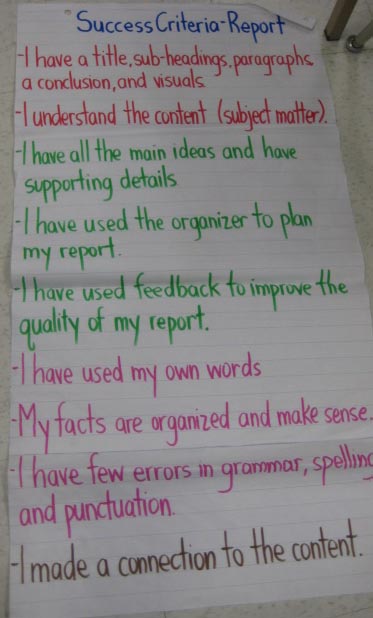 Success Criteria-Report
-I have a title, sub-headings, paragraphs,
a conclusion, and visuals.
-I understand the content (subject matter).
-I have all the main ideas and have
supporting details
-I have used the organizer to plan
my report.
-I have used feedback to improve the
quality of my report.
-I have used my own words
-My facts are organized and make sense.
-I have few errors in grammar, spelling
and punctuation.
-I made a connection to the content.